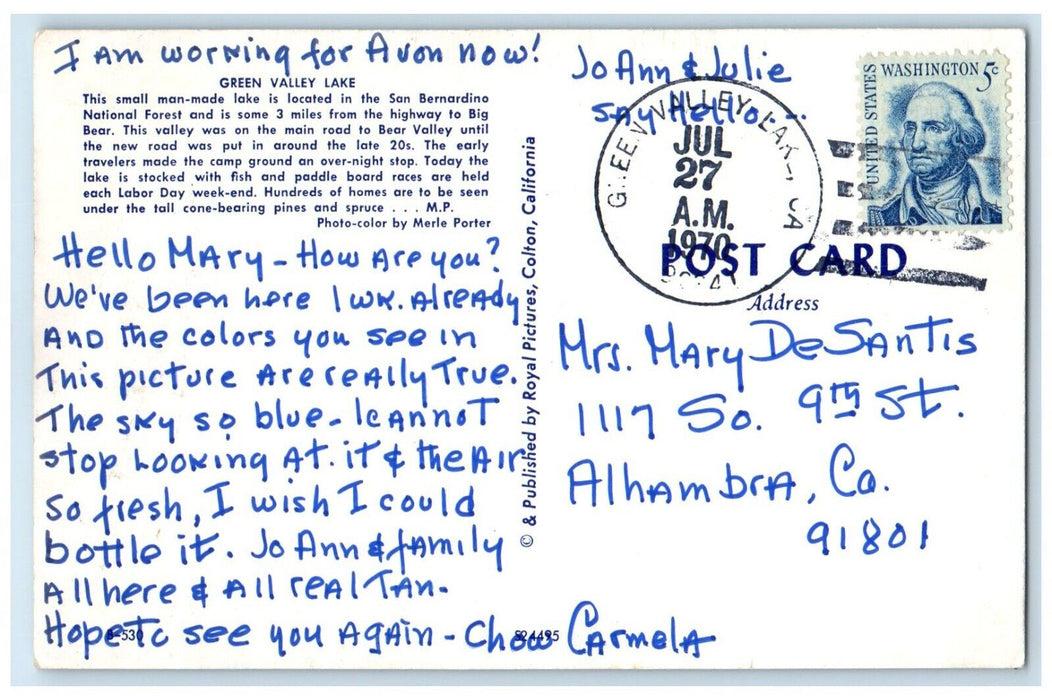 I Am working for Avon now!
GREEN VALLEY LAKE
This small man-made lake is located in the San Bernardino
National Forest and is some 3 miles from the highway to Big
Bear. This valley was on the main road to Bear Valley until
the new road was put in around the late 20s. The early
travelers made the camp ground an over-night stop. Today the
lake is stocked with fish and paddle board races are held
each Labor Day week-end. Hundreds of homes are to be seen
under the tall cone-bearing pines and spruce . . . M.P.
Photo-color by Merle Porter
Hello Mary - How Are you?
We've been here 1 wk. Already
And the colors you see in
This picture Are really True.
The sky so blue - I cannot
stop Looking At. it & the Air
So fresh, I wish I could
bottle it. Jo Ann & family
All here & All real Tan.
Hope to see you Again - Chow Carmela
B-530
S24495
© & Published by Royal Pictures, Colton, California
Jo Ann & Julie
say Hello...
GREEN VALLEY LAKE, CA
JUL
27
A.M.
1970
UNITED STATES
WASHINGTON 5c
POST CARD
Address
Mrs. Mary DeSantis
1117 So. 9th St.
Alhambra, Ca.
91801